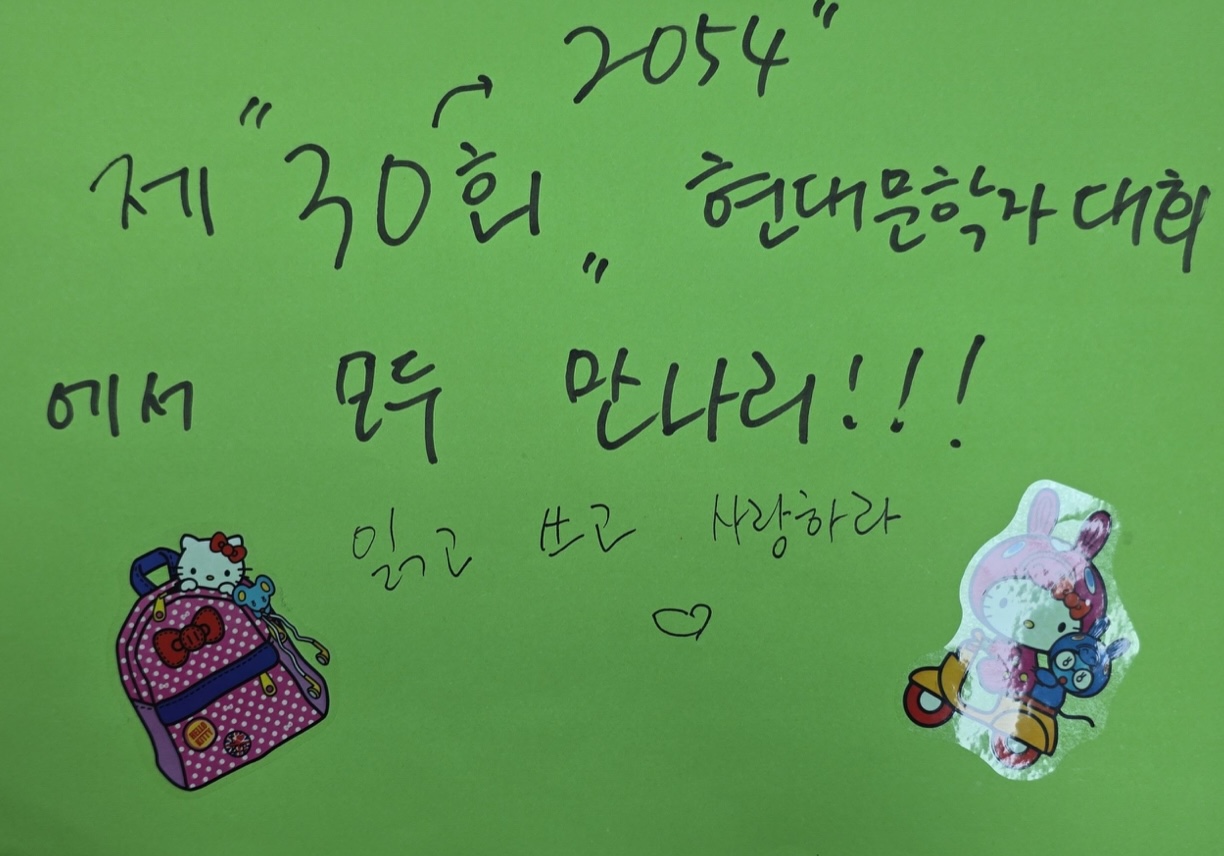 2054"
제 "30회" 현대문학자대회
에서 모두 만나리!!!
읽고 쓰고 사랑하라
HELLO KITTY